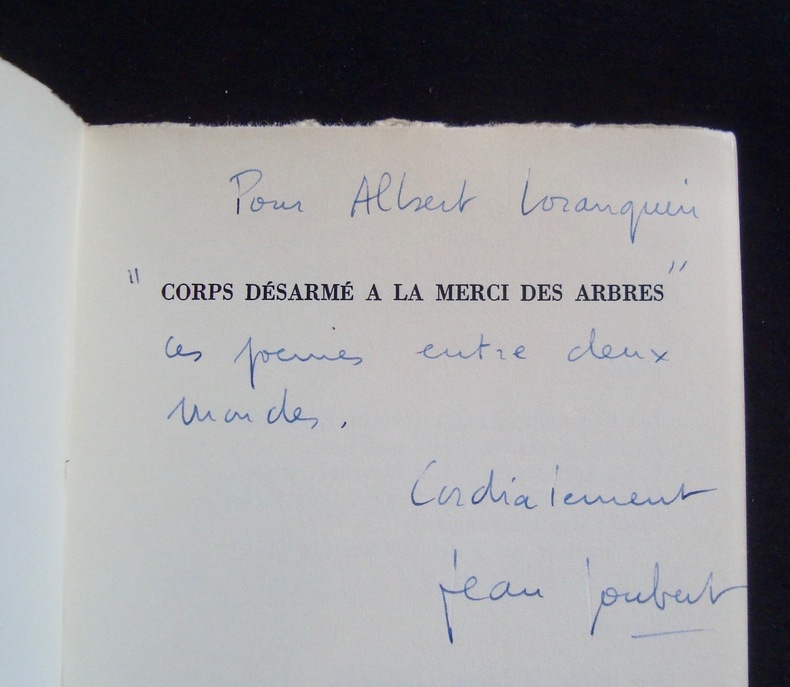 Pour Albert Loranquin
" CORPS DÉSARMÉ A LA MERCI DES ARBRES "
ces poèmes entre deux
mondes.
Cordialement
Jean Joubert